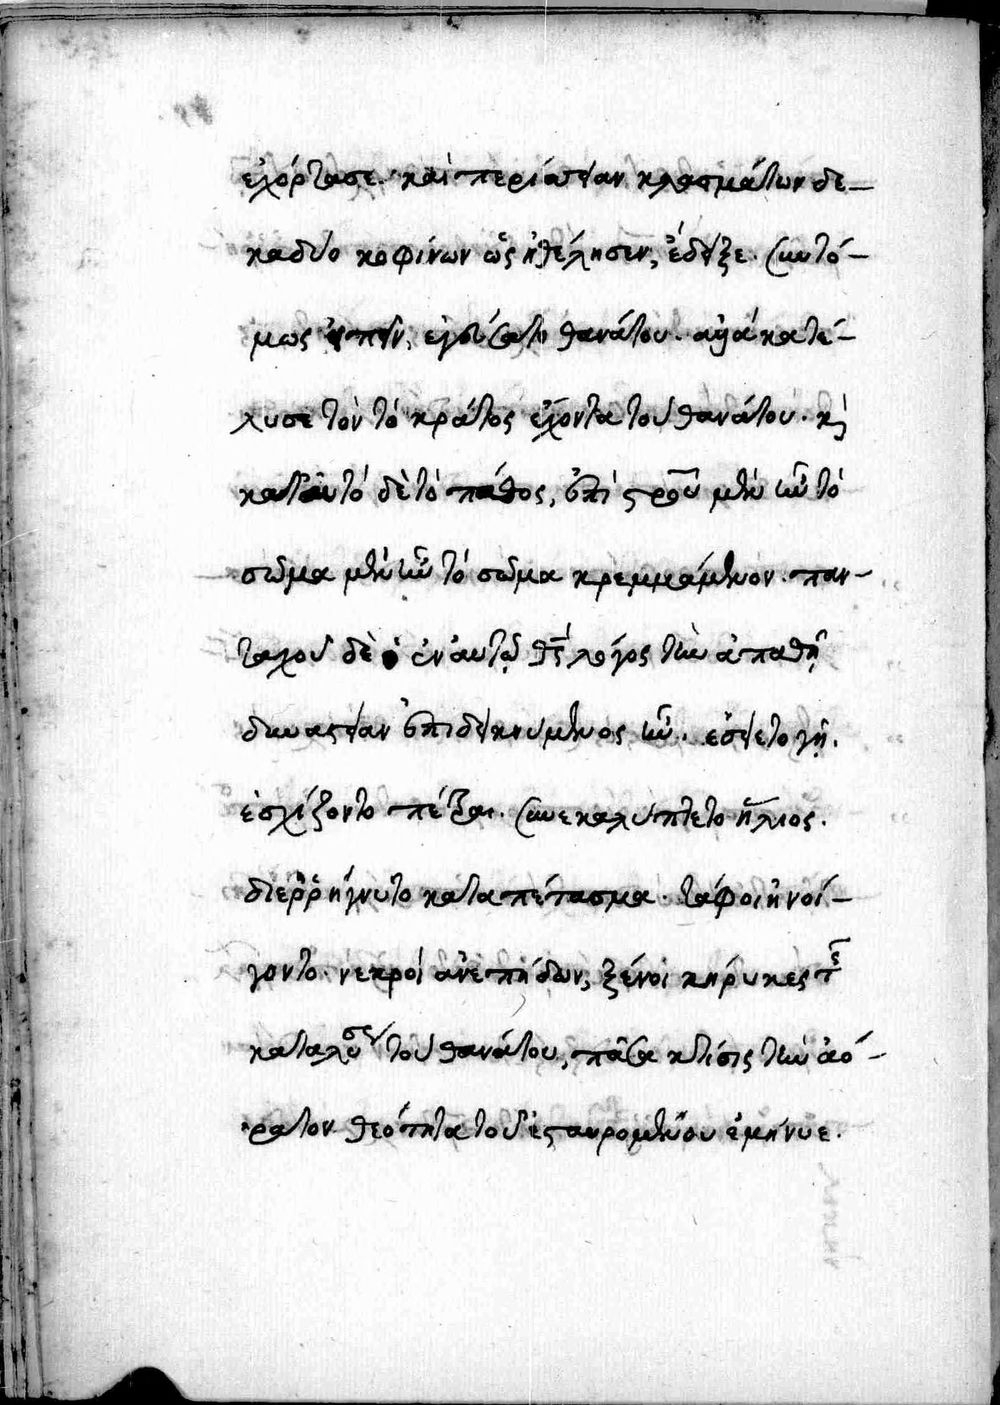 ἐχόρτασε. καὶ περισσείαν κλασμάτων δε-
καδύο κοφίνων ὡς ἠθέλησεν, ἔδειξε. συντό-
μως εἰπεῖν, ἐγεύσατο θανάτου. ἀλλὰ κατέ-
λυσε τὸν τὸ κράτος ἔχοντα τοῦ θανάτου. κ(αὶ)
κατ' αὐτὸ δὲ τὸ πάθος, ἐπὶ στ(αυ)ροῦ μὲν ἦν τὸ
σῶμα μὲν ἦν τὸ σῶμα κρεμμάμενον. παν-
ταχοῦ δὲ ὁ ἐν αὐτῷ θ(εὸ)ς λόγος τὴν ἀπαθῆ
δυναστείαν ἐπιδεικνύμενος ἦν. ἐσείετο γῆ.
ἐσχίζοντο πέτραι. συνεκαλύπτετο ἥλιος.
διεῤῥήγνυτο καταπέτασμα. τάφοι ἠνοί-
γοντο. νεκροὶ ἀνεπήδων, ξένοι κήρυκες τῆς
καταλύσει τοῦ θανάτου, πᾶσα κτίσις τὴν ἀό-
ρατον θεότητα τοῦ ἐσταυρομένου ἐμήνυε.